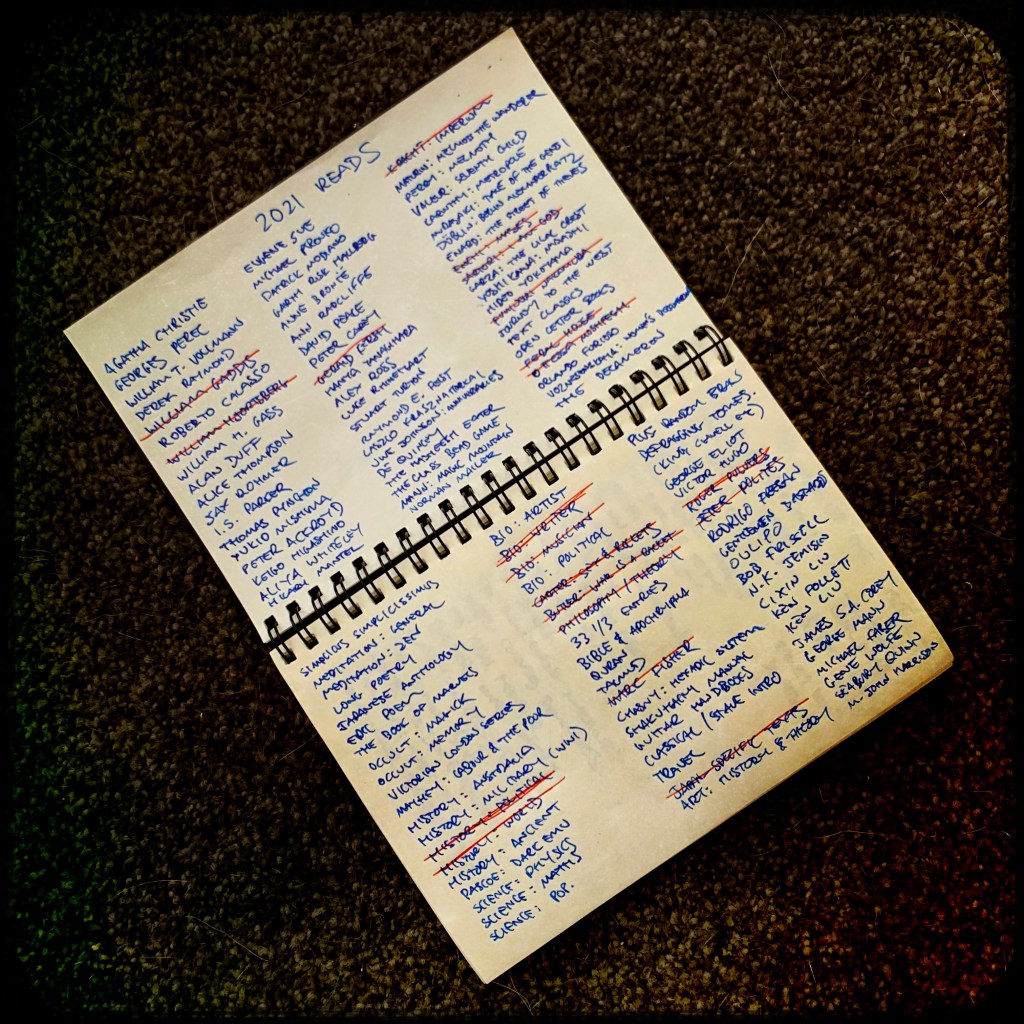 2021 READS
AGATHA CHRISTIE
GEORGES PEREC
WILLIAM T. VOLLMANN
DEREK RAYMOND
WILLIAM GADDIS
ROBERTO CALASSO
WILLIAM HOPE
WILLIAM H. GASS
ALAN DUFF
ALICE THOMPSON
SAX ROHMER
I.S. PARGER
THOMAS PYNCHON
YUKIO MISHIMA
PETER ACKROYD
KEIGO HIGASHINO
ALIYA WHITELEY
HILARY MANTEL
EUGENE SUE
MICHAEL PRONKO
PATRICK MODIANO
GARTH RISK HALLBERG
ANNE BRONTË
ANN RADCLIFFE
DAVID PEACE
PETER CAREY
GERALD
HANYA YANAGIHARA
ALEX ROSS
LUKE RHINEHART
STUART TURTON
RAYMOND E. FEIST
LÁSZLÓ KRASZNAHORKAI
UWE JOHNSON: ANNIVERSARIES
DE QUINCEY
THE MANIFESTO
THE GLASS BEAD GAME
MANN: MAGIC MOUNTAIN
NORMAN MAILER
MATURIN: MELMOTH THE WANDERER
PERRY: MELMOTH
VACHSS: SEVENTH CHILD
KARINTHY: METROPOLE
MURASAKI: TALE OF THE GENJI
DÖBLIN: BERLIN ALEXANDERPLATZ
ENARD: THE STREET OF THIEVES
GOD
GARZA: THE ILIAC CREST
YOSHIKAWA: MUSASHI
HIDEO YOKOYAMA
JOURNEY TO THE WEST
TEXT CLASSICS
OPEN LETTER BOOKS
ORLANDO FURIOSO
THE DECAMERON
SIMPLICIUS SIMPLICISSIMUS
MEDITATION: GENERAL
MEDITATION: ZEN
LONG POETRY
JAPANESE ANTHOLOGY
EPIC POEM
THE BOOK OF MARVELS
OCCULT: MAGICK
OCCULT: MEMORY
VICTORIAN LONDON SERIES
MAYHEW: LABOUR & THE POOR
HISTORY: AUSTRALIA
HISTORY: MILITARY (WWI)
HISTORY: POLITICAL
HISTORY: WORLD
HISTORY: ANCIENT
PASCOE: DARK EMU
SCIENCE: PHYSICS
SCIENCE: MATHS
SCIENCE: POP.
BIO: ARTIST
BIO: WRITER
BIO: MUSICIAN
BIO: POLITICAL
CARTER: SEX & ROCKETS
BUTLER: WAR IS A RACKET
PHILOSOPHY / THEORY
33 1/3 ENTRIES
BIBLE & APOCRYPHA
QURAN
TALMUD
MARC FISHER
CHABNY: HERALDIC SYSTEM
SHAKUHACHI MANUAL
GUITAR HANDBOOKS
CLASSICAL / STAGE INTRO
TRAVEL
JAPAN-SPECIFIC TEXTS
ART: HISTORY & THEORY
PLUS RANDOM EROS
DEFRAGGING TORIES.
(KING, CLAVELL ETC)
GEORGE ELIOT
VICTOR HUGO
RIDER
PETER POLITES
RODRIGO FRESÁN
GENTLEMEN BASTARD
OULIPO
BOB FRISSELL
N.K. JEMISIN
CIXIN LIU
KEN FOLLETT
KEN LIU
JAMES S.A. COREY
GEORGE MANN
MICHAEL FABER
GENE WOLFE
SEABURY QUINN
M. JOHN HARRISON